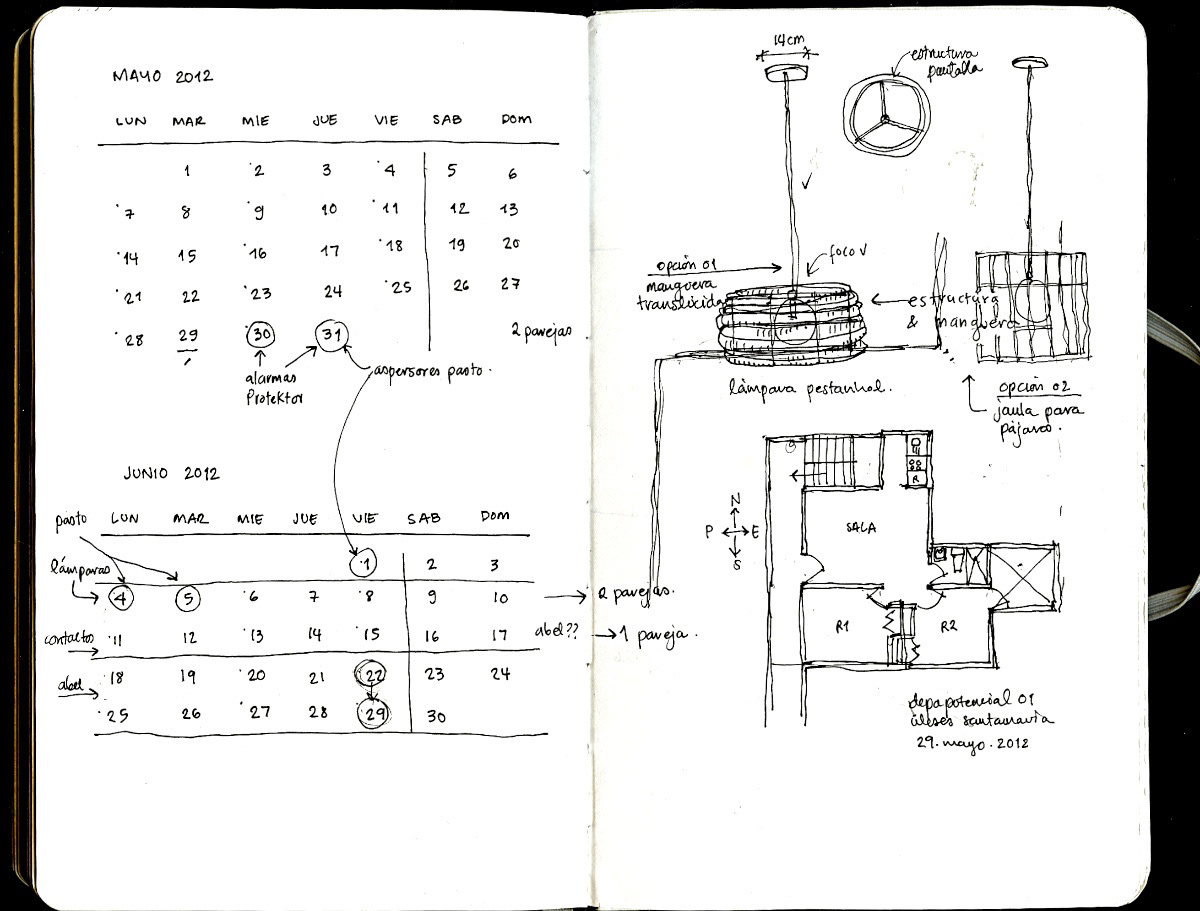 MAYO 2012
LUN MAR MIE JUE VIE SAB DOM
1 2 3 4 5 6
7 8 9 10 11 12 13
14 15 16 17 18 19 20
21 22 23 24 25 26 27
28 29 30 31 2 parejas
alarmas
Protektor
aspersores pasto.
JUNIO 2012
pasto
LUN MAR MIE JUE VIE SAB DOM
1 2 3
lámparas
4 5 6 7 8 9 10
2 parejas.
contactos
11 12 13 14 15 16 17
abel?? 1 pareja.
abel
18 19 20 21 22 23 24
25 26 27 28 29 30
14cm
estructura
pantalla
opción 01
manguera
translúcida
foco V
estructura
& manguera
lámpara pestanhol.
opción 02
jaula para
pájaros.
N
P E
S
R
SALA
R1
R2
depa potencial 01
ulises santamaría
29.mayo.2012